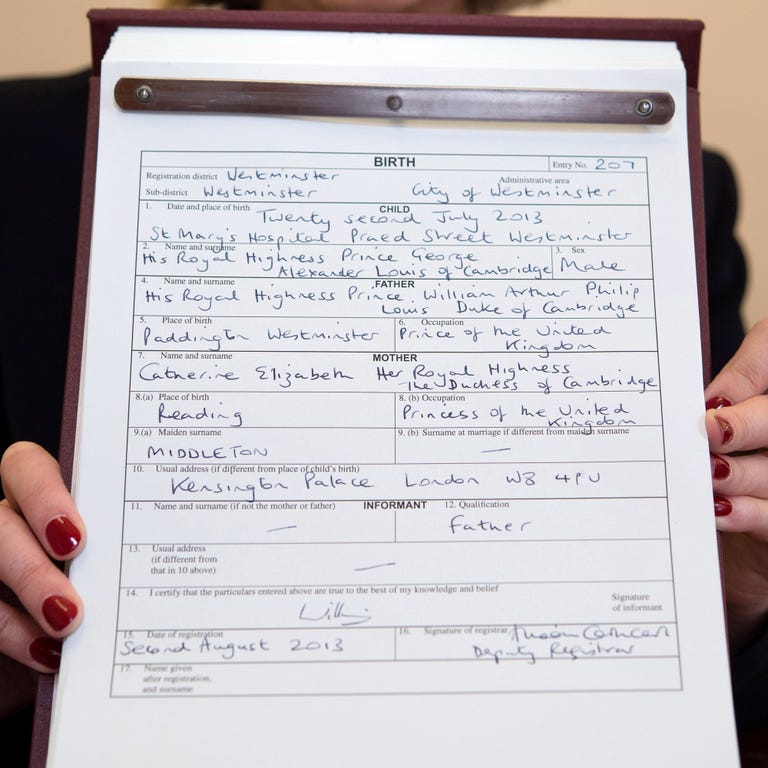 BIRTH
Entry No. 207
Registration district Westminster
Administrative area
Sub-district Westminster City of Westminster
1. Date and place of birth CHILD
Twenty second July 2013
St Mary's Hospital Praed Street Westminster
2. Name and surname 3. Sex
His Royal Highness Prince George
Alexander Louis of Cambridge Male
4. Name and surname FATHER
His Royal Highness Prince William Arthur Philip
Louis Duke of Cambridge
5. Place of birth 6. Occupation
Paddington Westminster Prince of the United
Kingdom
7. Name and surname MOTHER
Catherine Elizabeth Her Royal Highness
The Duchess of Cambridge
8.(a) Place of birth 8. (b) Occupation
Reading Princess of the United
Kingdom
9.(a) Maiden surname 9. (b) Surname at marriage if different from maiden surname
MIDDLETON —
10. Usual address (if different from place of child's birth)
Kensington Palace London W8 4PU
11. Name and surname (if not the mother or father) INFORMANT 12. Qualification
— Father
13. Usual address
(if different from
that in 10 above) —
14. I certify that the particulars entered above are true to the best of my knowledge and belief
Signature
of informant
15. Date of registration 16. Signature of registrar
Second August 2013
Deputy Registrar
17. Name given
after registration,
and surname